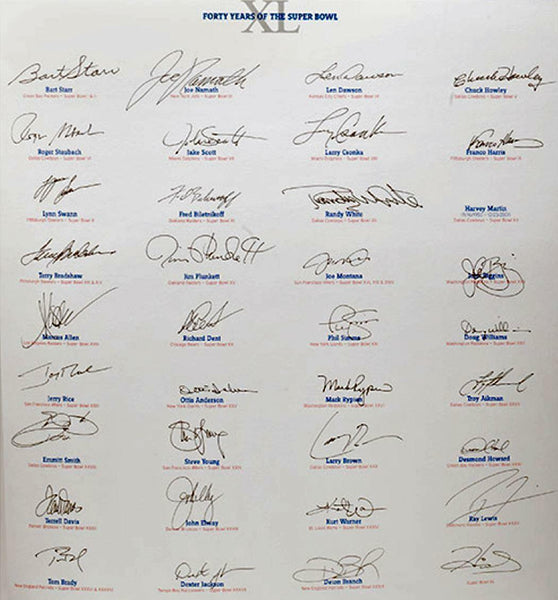 XL
FORTY YEARS OF THE SUPER BOWL
Bart Starr Joe Namath Len Dawson Chuck Howley
Bart Starr Joe Namath Len Dawson Chuck Howley
Green Bay Packers - Super Bowl I & II New York Jets - Super Bowl III Kansas City Chiefs - Super Bowl IV Dallas Cowboys - Super Bowl V
Roger Staubach Jake Scott Larry Csonka Franco Harris
Dallas Cowboys - Super Bowl VI Miami Dolphins - Super Bowl VII Miami Dolphins - Super Bowl VIII Pittsburgh Steelers - Super Bowl IX
Lynn Swann Fred Biletnikoff Randy White Harvey Martin
Pittsburgh Steelers - Super Bowl X Oakland Raiders - Super Bowl XI Dallas Cowboys - Super Bowl XII
Terry Bradshaw Jim Plunkett Joe Montana Riggins
Pittsburgh Steelers - Super Bowl XIII & XIV Oakland Raiders - Super Bowl XV San Francisco 49ers - Super Bowl XVI, XIX & XXIV
Marcus Allen Richard Dent Phil Simms Doug Williams
Los Angeles Raiders - Super Bowl XVIII Chicago Bears - Super Bowl XX New York Giants - Super Bowl XXI Washington Redskins - Super Bowl XXII
Jerry Rice Ottis Anderson Mark Rypien Troy Aikman
San Francisco 49ers - Super Bowl XXIII New York Giants - Super Bowl XXV Washington Redskins - Super Bowl XXVI Dallas Cowboys - Super Bowl XXVII
Emmitt Smith Steve Young Larry Brown Desmond Howard
Dallas Cowboys - Super Bowl XXVIII San Francisco 49ers - Super Bowl XXIX Dallas Cowboys - Super Bowl XXX Green Bay Packers - Super Bowl XXXI
Terrell Davis John Elway Kurt Warner Ray Lewis
Denver Broncos - Super Bowl XXXII Denver Broncos - Super Bowl XXXIII St. Louis Rams - Super Bowl XXXIV Baltimore Ravens - Super Bowl XXXV
Tom Brady Dexter Jackson Deion Branch
New England Patriots - Super Bowl Tampa Bay Buccaneers - Super Bowl XXXVII New England Patriots - Super Bowl XXXIX Super Bowl XL